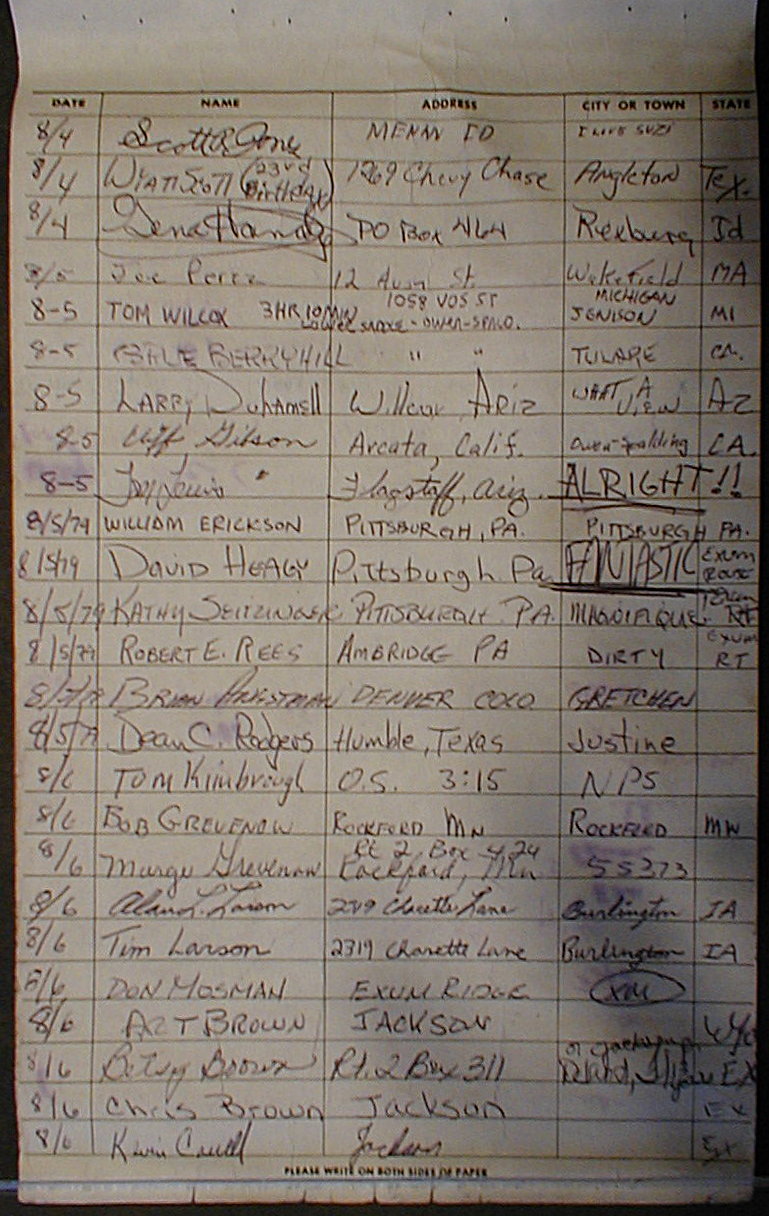 DATE NAME ADDRESS CITY OR TOWN STATE
8/4 Scott R Jones MENAN ID I LIVE SUZI
8/4 WYATT SCOTT (23rd Birthday) 1269 Chevy Chase Angleton Tex.
8/4 Gene Handy PO Box 464 Rexburg Id
8/5 Joe Perez 12 St. Wakefield MA
8-5 TOM WILCOX 3HR 10MIN 1058 VOS ST MICHIGAN JENISON MI
LOWER SADDLE - OWEN-SPALD.
8-5 BERRYHILL " " TULARE CA.
8-5 LARRY DUHAMELL Willcox, ARIZ WHAT A VIEW AZ
8-5 Cliff Gibson Arcata, Calif. Owen-Spalding CA.
8-5 Lewis " Flagstaff, Ariz. ALRIGHT!!
8/5/79 WILLIAM ERICKSON PITTSBURGH, PA. PITTSBURGH PA.
8/5/79 DAVID HEALY Pittsburgh Pa FANTASTIC EXUM ROUTE
8/5/79 KATHY SEITZINGER PITTSBURGH PA. MAGNIFIQUE. EXUM RT
8/5/79 ROBERT E. REES AMBRIDGE PA DIRTY EXUM RT
8/5/79 BRIAN DENVER COLO GRETCHEN
8/5/79 Dean C. Rodgers Humble, Texas Justine
8/6 TOM Kimbrough O.S. 3:15 NPS
8/6 BOB GREVENOW ROCKFORD MN ROCKFORD MN
8/6 Marge Grevenow Rt 2 Box 424 Rockford, Mn 55373
8/6 Alan L. Larson 2319 Charette Lane Burlington IA
8/6 Tim Larson 2319 Charette Lane Burlington IA
8/6 DON MOSMAN EXUM RIDGE
8/6 ART BROWN JACKSON Wyo
8/6 Betsy Brown Rt. 2 Box 311 EX
8/6 Chris Brown Jackson EX
8/6 Kevin Jackson Ex
PLEASE WRITE ON BOTH SIDES OF PAPER